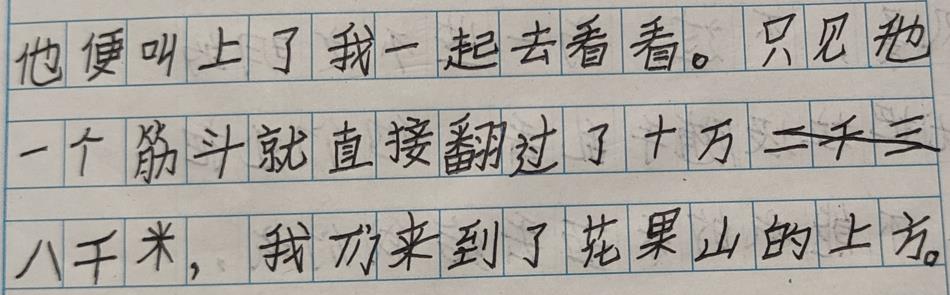 他便叫上了我一起去看看。只见他
一个筋斗就直接翻过了十万二千三
八千米，我们来到了花果山的上方。